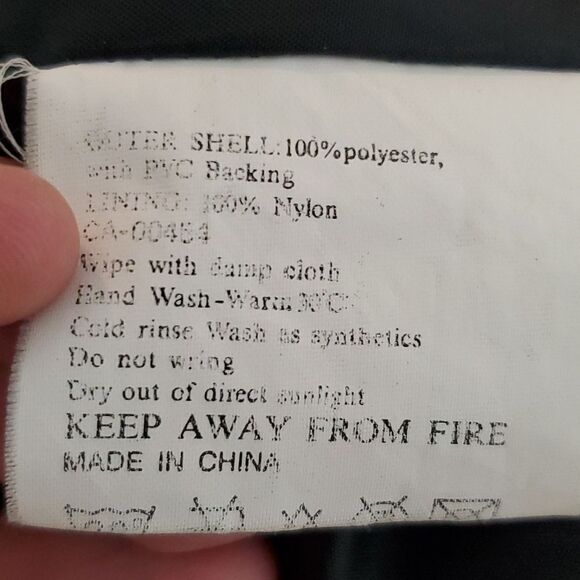 OUTER SHELL:100%polyester,
with PVC Backing
LINING: 100% Nylon
CA-00484
Wipe with damp cloth
Hand Wash-Warm 30°C
Cold rinse Wash as synthetics
Do not wring
Dry out of direct sunlight
KEEP AWAY FROM FIRE
MADE IN CHINA